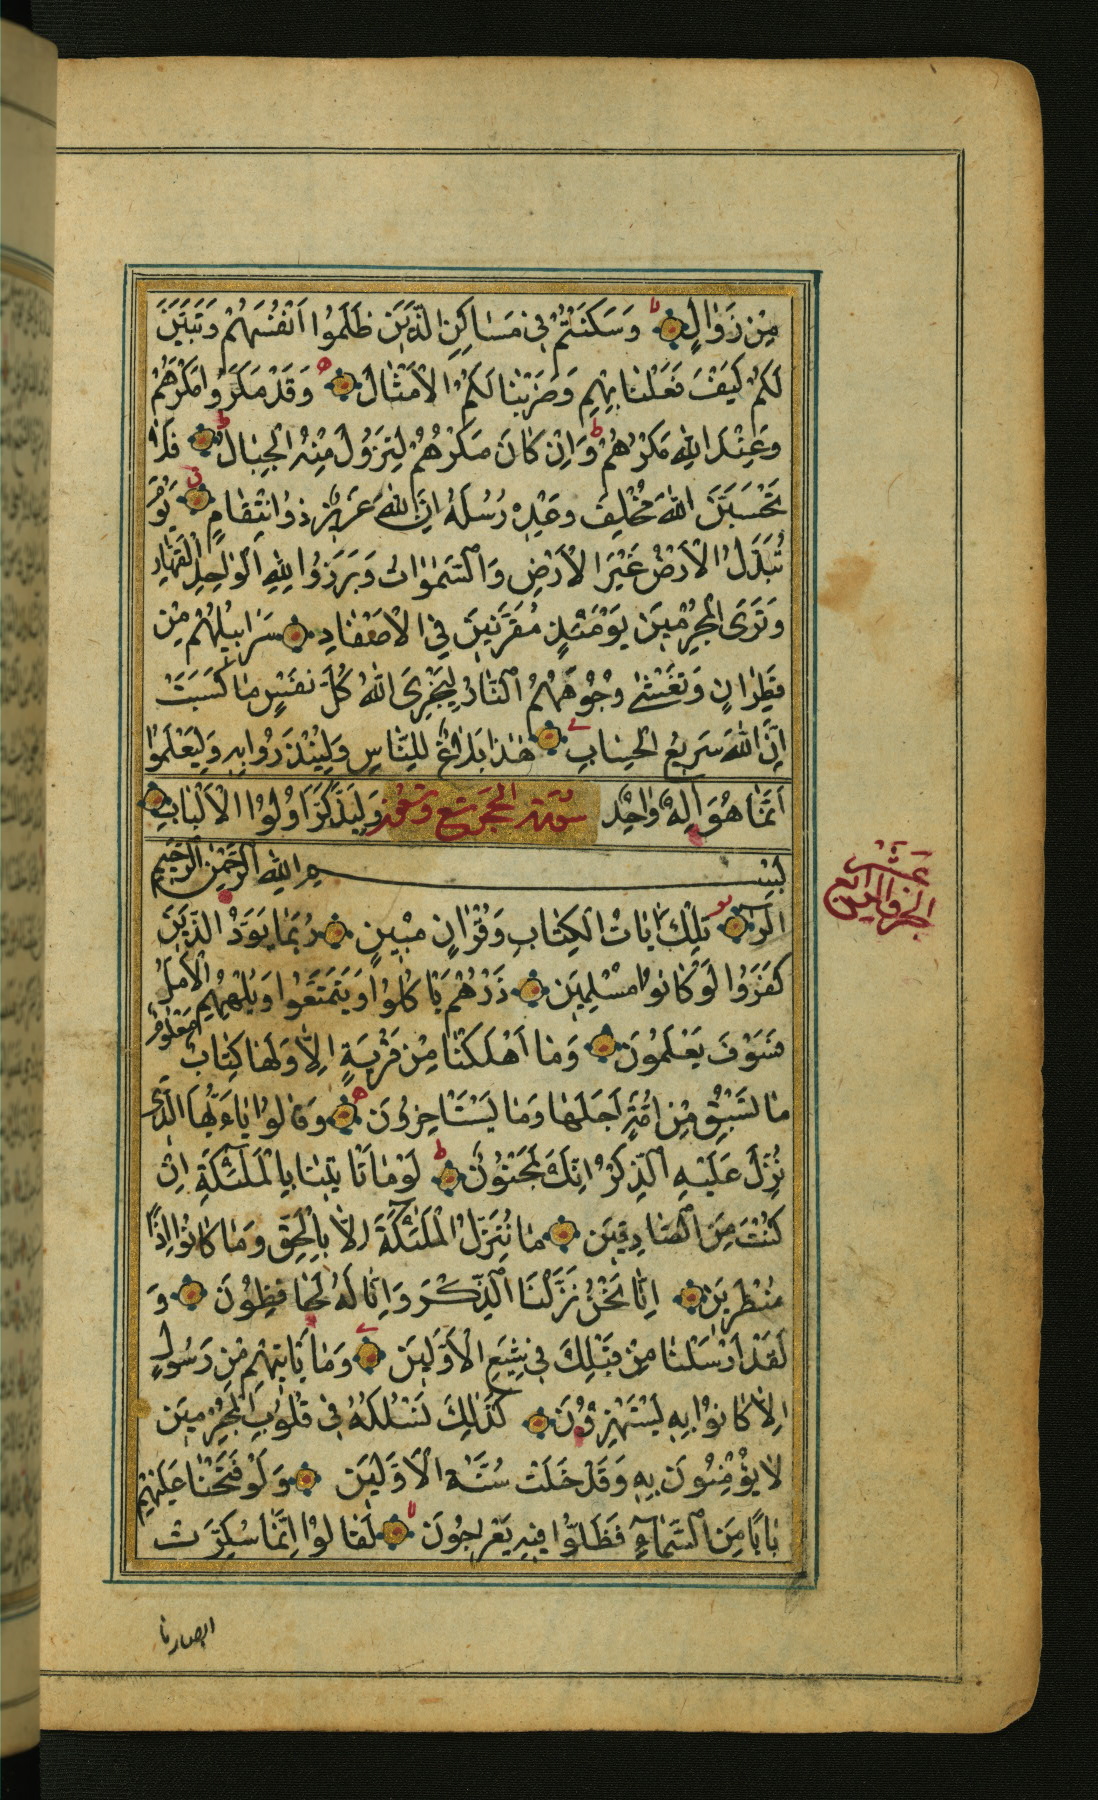 مِنْ زَوٰالٍ وَسَكَنْتُمْ فِي مَسٰاكِنِ الَّذِينَ ظَلَمُوا اَنْفُسَهُمْ وَتَبَيَّنَ
لَكُمْ كَيْفَ فَعَلْنٰا بِهِمْ وَضَرَبْنٰا لَكُمُ الْاَمْثٰالَ وَقَدْ مَكَرُوا مَكْرَهُمْ
وَعِنْدَ اللّٰهِ مَكْرُهُمْ وَاِنْ كٰانَ مَكْرُهُمْ لِتَزُولَ مِنْهُ الْجِبٰالُ فَلٰا
تَحْسَبَنَّ اللّٰهَ مُخْلِفَ وَعْدِهِ رُسُلَهُ اِنَّ اللّٰهَ عَزِيزٌ ذُو انْتِقٰامٍ يَوْمَ
تُبَدَّلُ الْاَرْضُ غَيْرَ الْاَرْضِ وَالسَّمٰوٰاتُ وَبَرَزُوا لِلّٰهِ الْوٰاحِدِ الْقَهّٰارِ
وَتَرَى الْمُجْرِمِينَ يَوْمَئِذٍ مُقَرَّنِينَ فِي الْاَصْفٰادِ سَرٰابِيلُهُمْ مِنْ
قَطِرٰانٍ وَتَغْشٰى وُجُوهَهُمُ النّٰارُ لِيَجْزِيَ اللّٰهُ كُلَّ نَفْسٍ مٰا كَسَبَتْ
اِنَّ اللّٰهَ سَرِيعُ الْحِسٰابِ هٰذٰا بَلٰاغٌ لِلنّٰاسِ وَلِيُنْذَرُوا بِهِ وَلِيَعْلَمُوا
اَنَّمٰا هُوَ اِلٰهٌ وٰاحِدٌ سورة الحجر تسع وتسعون وَلِيَذَّكَّرَ اُولُوا الْاَلْبٰابِ
بِسْمِ اللّٰهِ الرَّحْمٰنِ الرَّحِيمِ
الٓرٰ تِلْكَ اٰيٰاتُ الْكِتٰابِ وَقُرْاٰنٍ مُبِينٍ رُبَمٰا يَوَدُّ الَّذِينَ
كَفَرُوا لَوْ كٰانُوا مُسْلِمِينَ ذَرْهُمْ يَاْكُلُوا وَيَتَمَتَّعُوا وَيُلْهِهِمُ الْاَمَلُ
فَسَوْفَ يَعْلَمُونَ وَمٰا اَهْلَكْنٰا مِنْ قَرْيَةٍ اِلّٰا وَلَهٰا كِتٰابٌ مَعْلُومٌ
مٰا تَسْبِقُ مِنْ اُمَّةٍ اَجَلَهٰا وَمٰا يَسْتَاْخِرُونَ وَقٰالُوا يٰاءَيُّهَا الَّذِي
نُزِّلَ عَلَيْهِ الذِّكْرُ اِنَّكَ لَمَجْنُونٌ لَوْمٰا تَاْتِينٰا بِالْمَلٰئِكَةِ اِنْ
كُنْتَ مِنَ الصّٰادِقِينَ مٰا نُنَزِّلُ الْمَلٰئِكَةَ اِلّٰا بِالْحَقِّ وَمٰا كٰانُوا اِذًا
مُنْظَرِينَ اِنّٰا نَحْنُ نَزَّلْنَا الذِّكْرَ وَاِنّٰا لَهُ لَحٰافِظُونَ وَ
لَقَدْ اَرْسَلْنٰا مِنْ قَبْلِكَ فِي شِيَعِ الْاَوَّلِينَ وَمٰا يَاْتِيهِمْ مِنْ رَسُولٍ
اِلّٰا كٰانُوا بِهِ يَسْتَهْزِؤُنَ كَذٰلِكَ نَسْلُكُهُ فِي قُلُوبِ الْمُجْرِمِينَ
لٰا يُؤْمِنُونَ بِهِ وَقَدْ خَلَتْ سُنَّةُ الْاَوَّلِينَ وَلَوْ فَتَحْنٰا عَلَيْهِمْ
بٰابًا مِنَ السَّمٰاءِ فَظَلُّوا فِيهِ يَعْرُجُونَ لَقٰالُوا اِنَّمٰا سُكِّرَتْ
الجزو الرابع عشر
ابصارنا